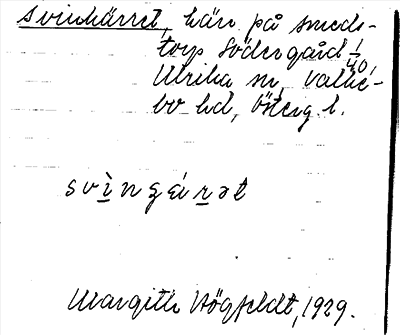 Svinkärret, kärr på Smeds-
torp Södergård 1/40
Ulrika sn, Valke-
bo hd, Österg. l.
svìngárət
Margith Högfeldt, 1929.